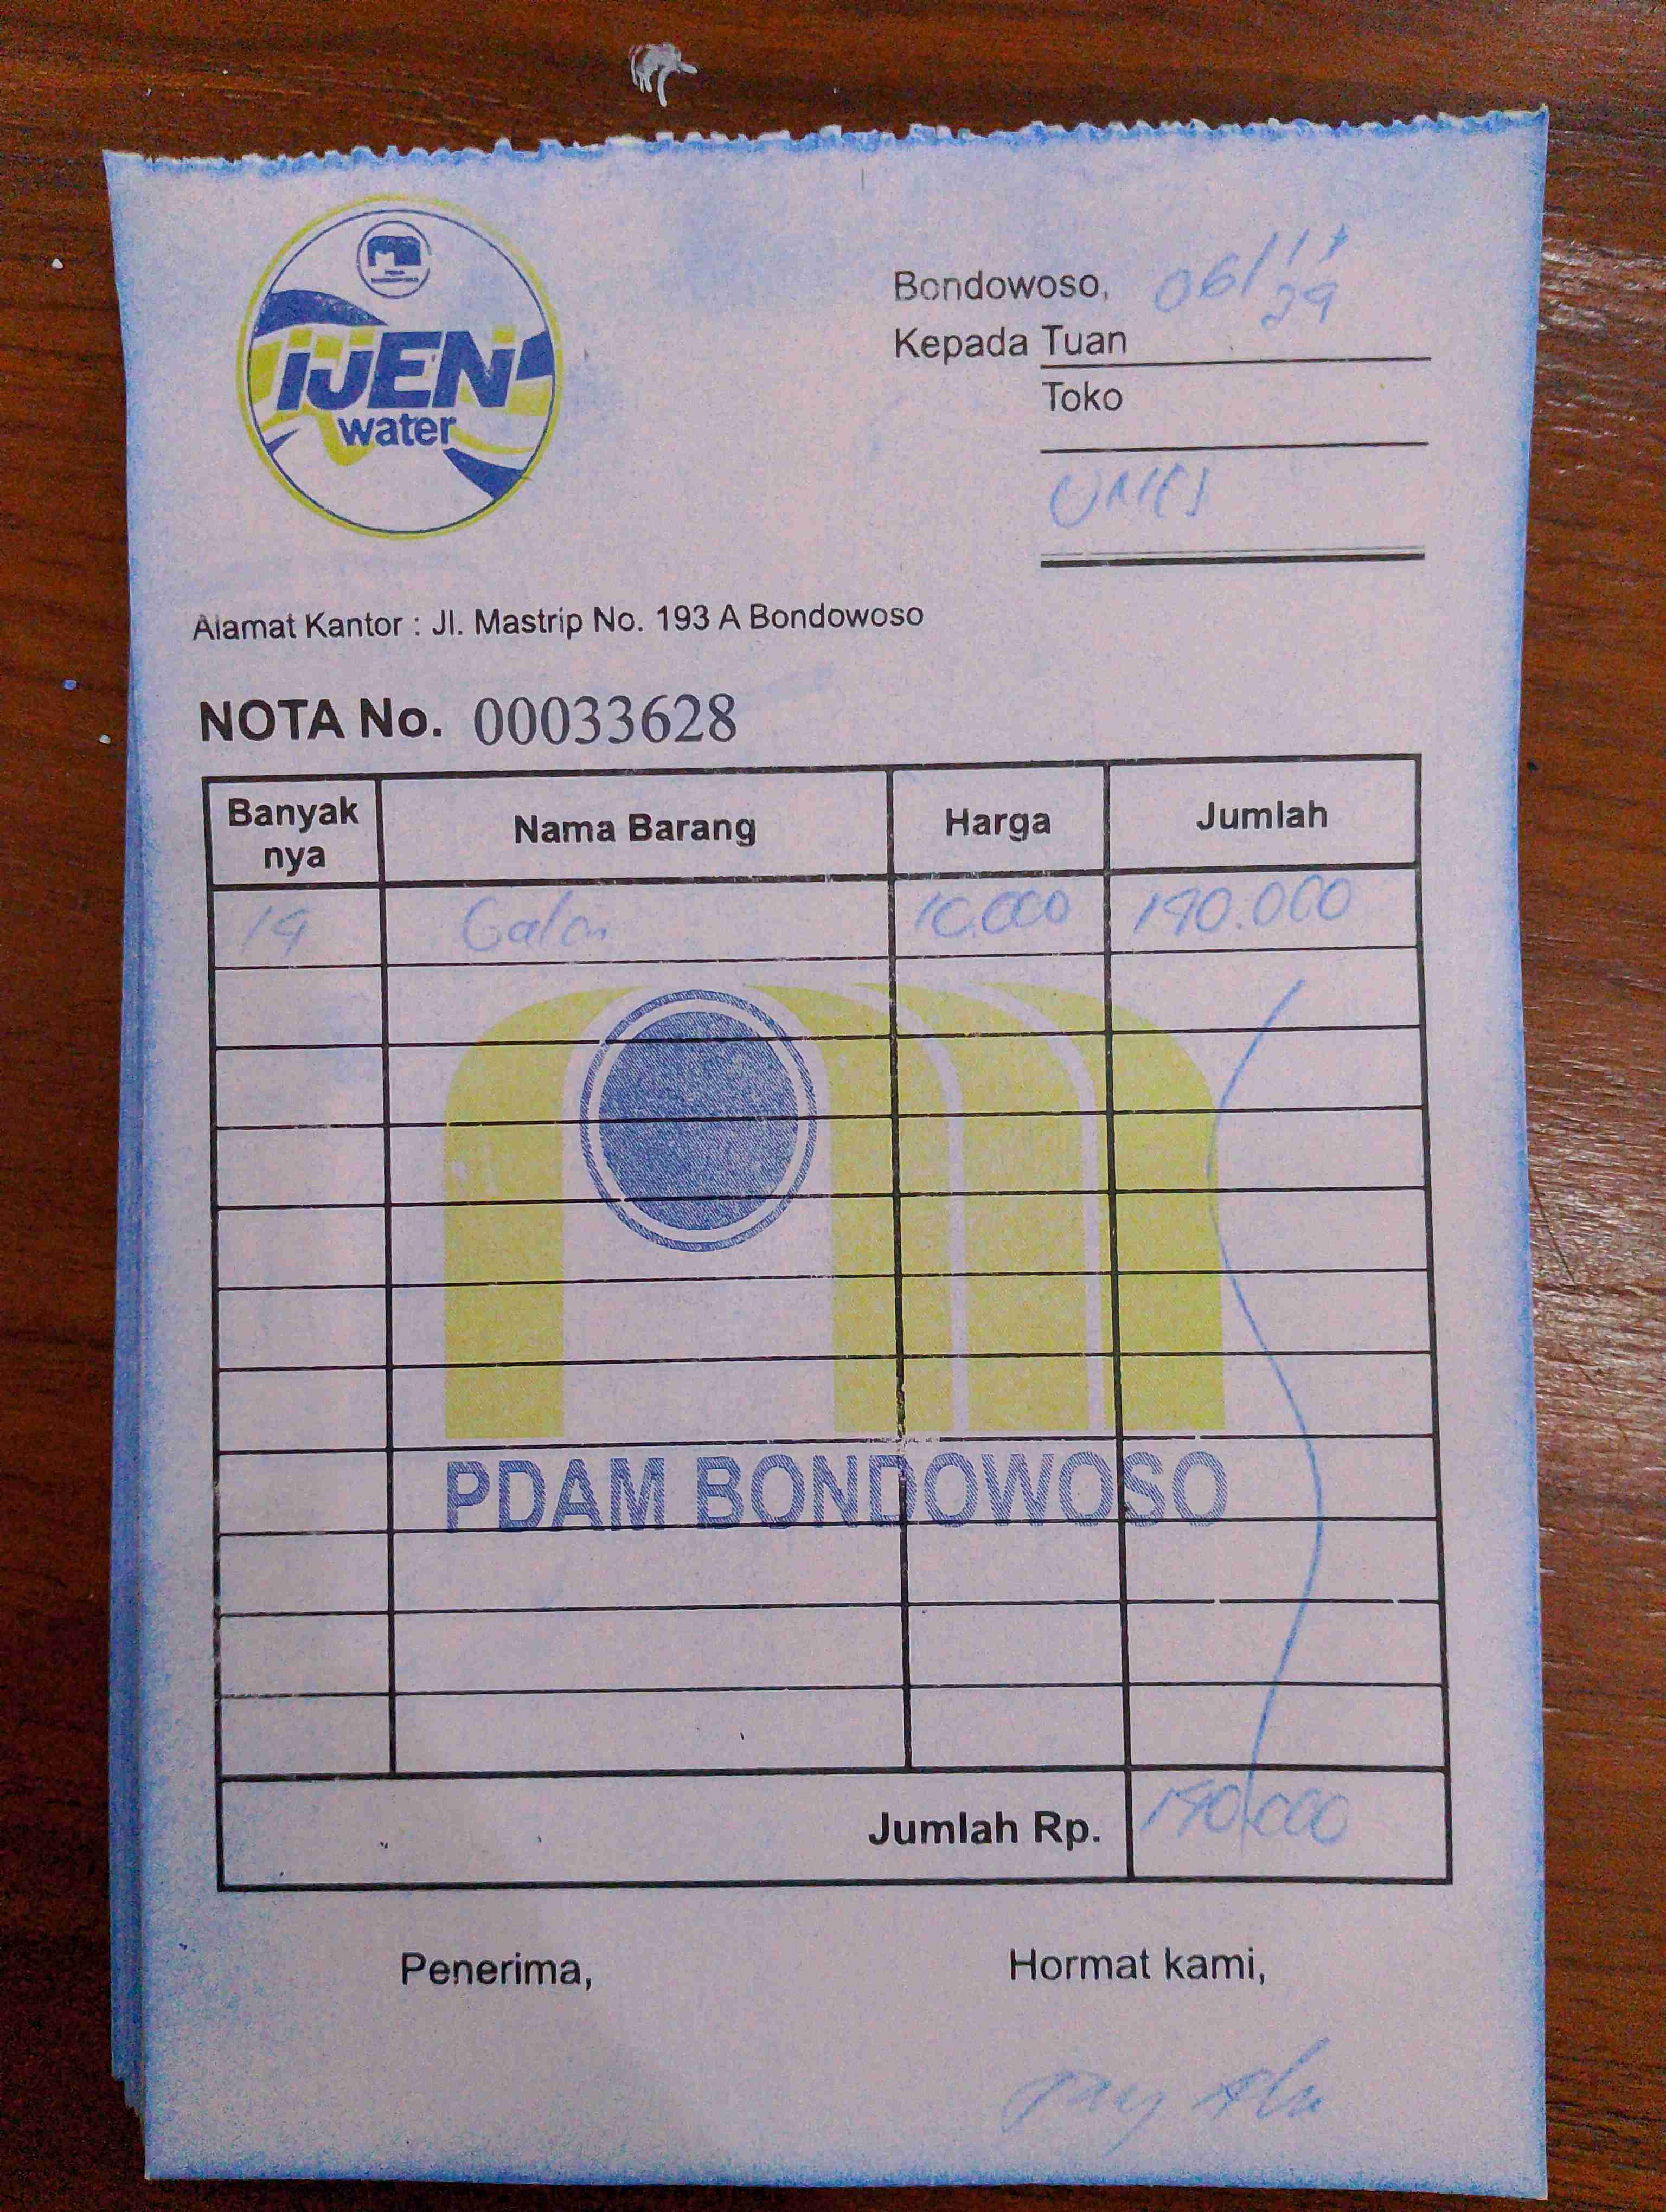 IJEN
water
Bondowoso, 06/11
Kepada Tuan
Toko
Alamat Kantor : Jl. Mastrip No. 193 A Bondowoso
NOTA No. 00033628
Banyak nya Nama Barang Harga Jumlah
19 Galon 10.000 190.000
PDAM BONDOWOSO
Jumlah Rp. 190.000
Penerima, Hormat kami,